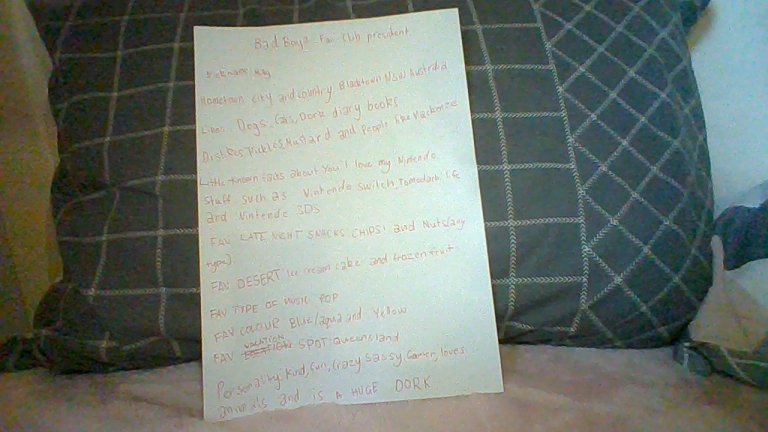 Bad Boyz Fan Club president
Nickname May
Hometown city and country Blacktown NSW Australia
Likes: Dogs, Cats, Dork diary books
Dislikes Pickles, Mustard and People like Mackenzie
Little-known facts about You: I love my Nintendo
stuff such as Nintendo switch, Tomodachi life
and Nintendo 3DS
FAV LATE NIGHT SNACKS CHIPS! and Nuts(any
type).
FAV DESERT Ice cream cake and frozen fruit
FAV TYPE OF MUSIC POP
FAV COLOUR Blue/aqua and Yellow
FAV vacation SPOT: Queensland
Personality: Kind, Fun, Crazy Sassy, Gamer, loves
animals and is A HUGE DORK